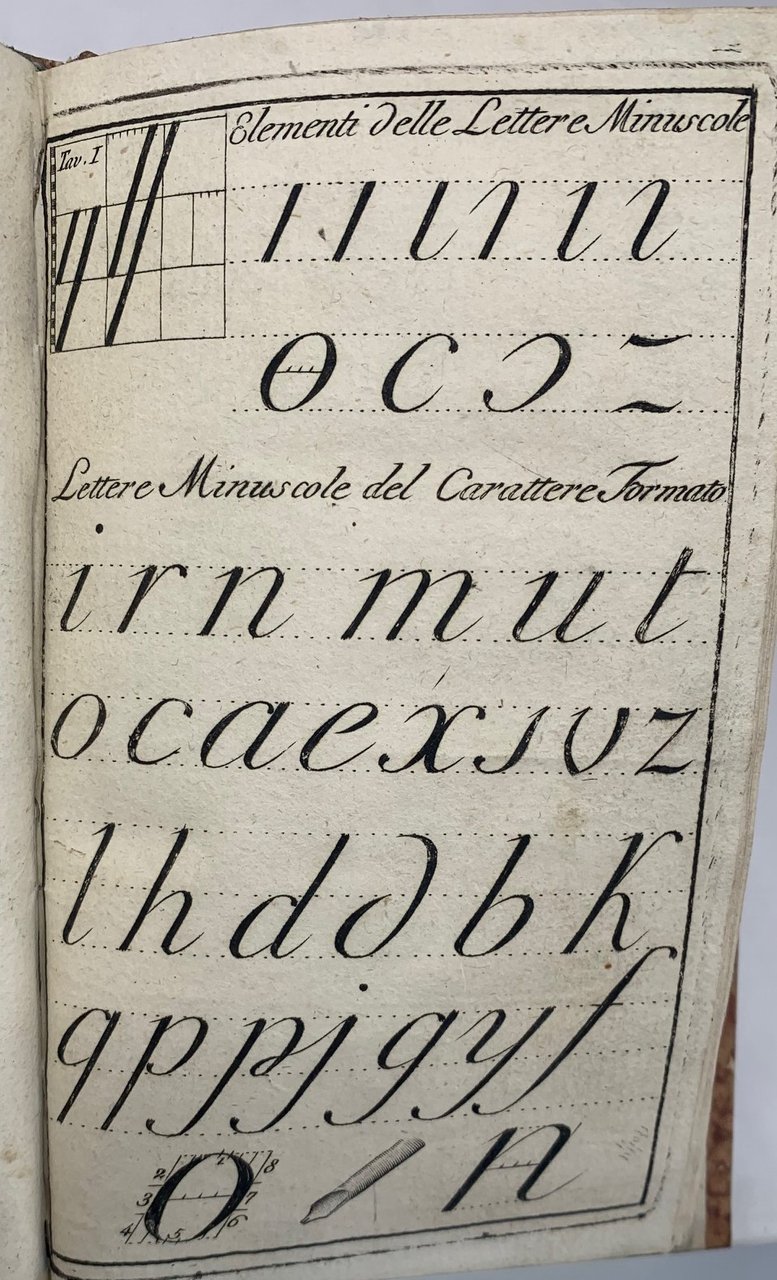 Tav. I
Elementi delle Lettere Minuscole
Lettere Minuscole del Carattere Formato
i r n m u t
o c a e x s v z
l h d d b k
q p p j g y f
2 3 4 5 6 7 8
n